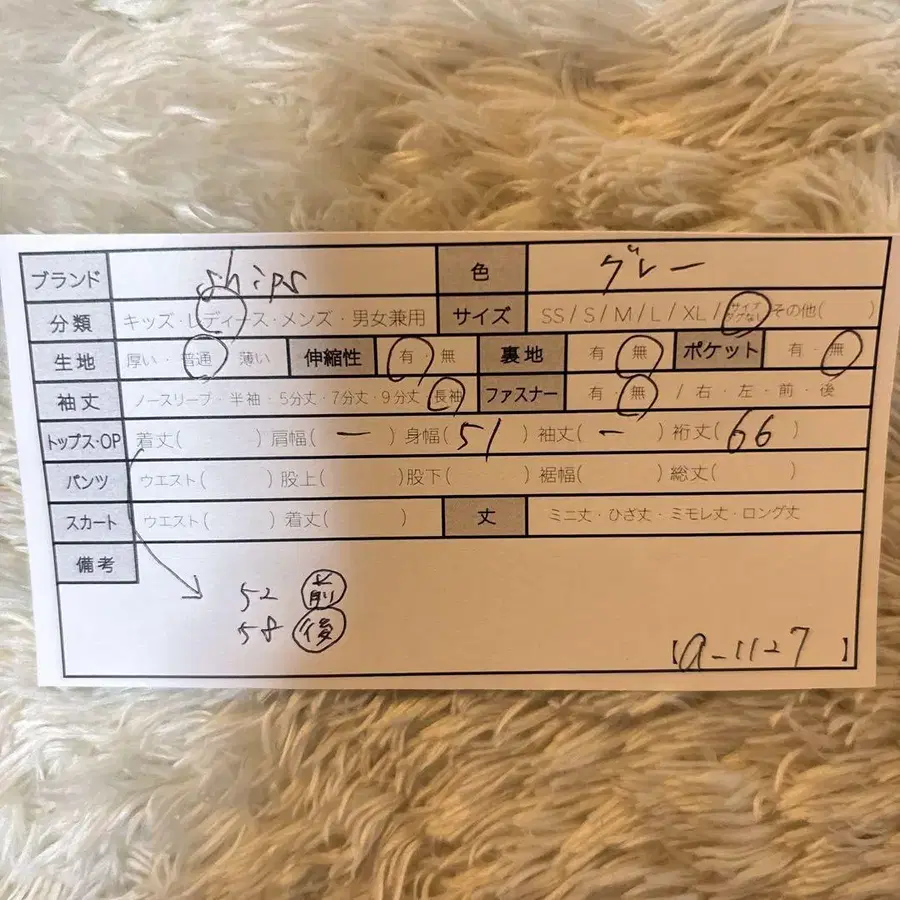 ブランド ships 色 グレー
分類 キッズ・レディース・メンズ・男女兼用 サイズ SS / S / M / L / XL / サイズタグなし その他( )
生地 厚い・普通・薄い 伸縮性 有・無 裏地 有・無 ポケット 有・無
袖丈 ノースリーブ・半袖・5分丈・7分丈・9分丈・長袖 ファスナー 有・無 / 右・左・前・後
トップス・OP 着丈( ) 肩幅( ー ) 身幅( 51 ) 袖丈( ー ) 裄丈( 66 )
パンツ ウエスト( ) 股上( ) 股下( ) 裾幅( ) 総丈( )
スカート ウエスト( ) 着丈( ) 丈 ミニ丈・ひざ丈・ミモレ丈・ロング丈
備考
52 前
58 後
【a-1127】